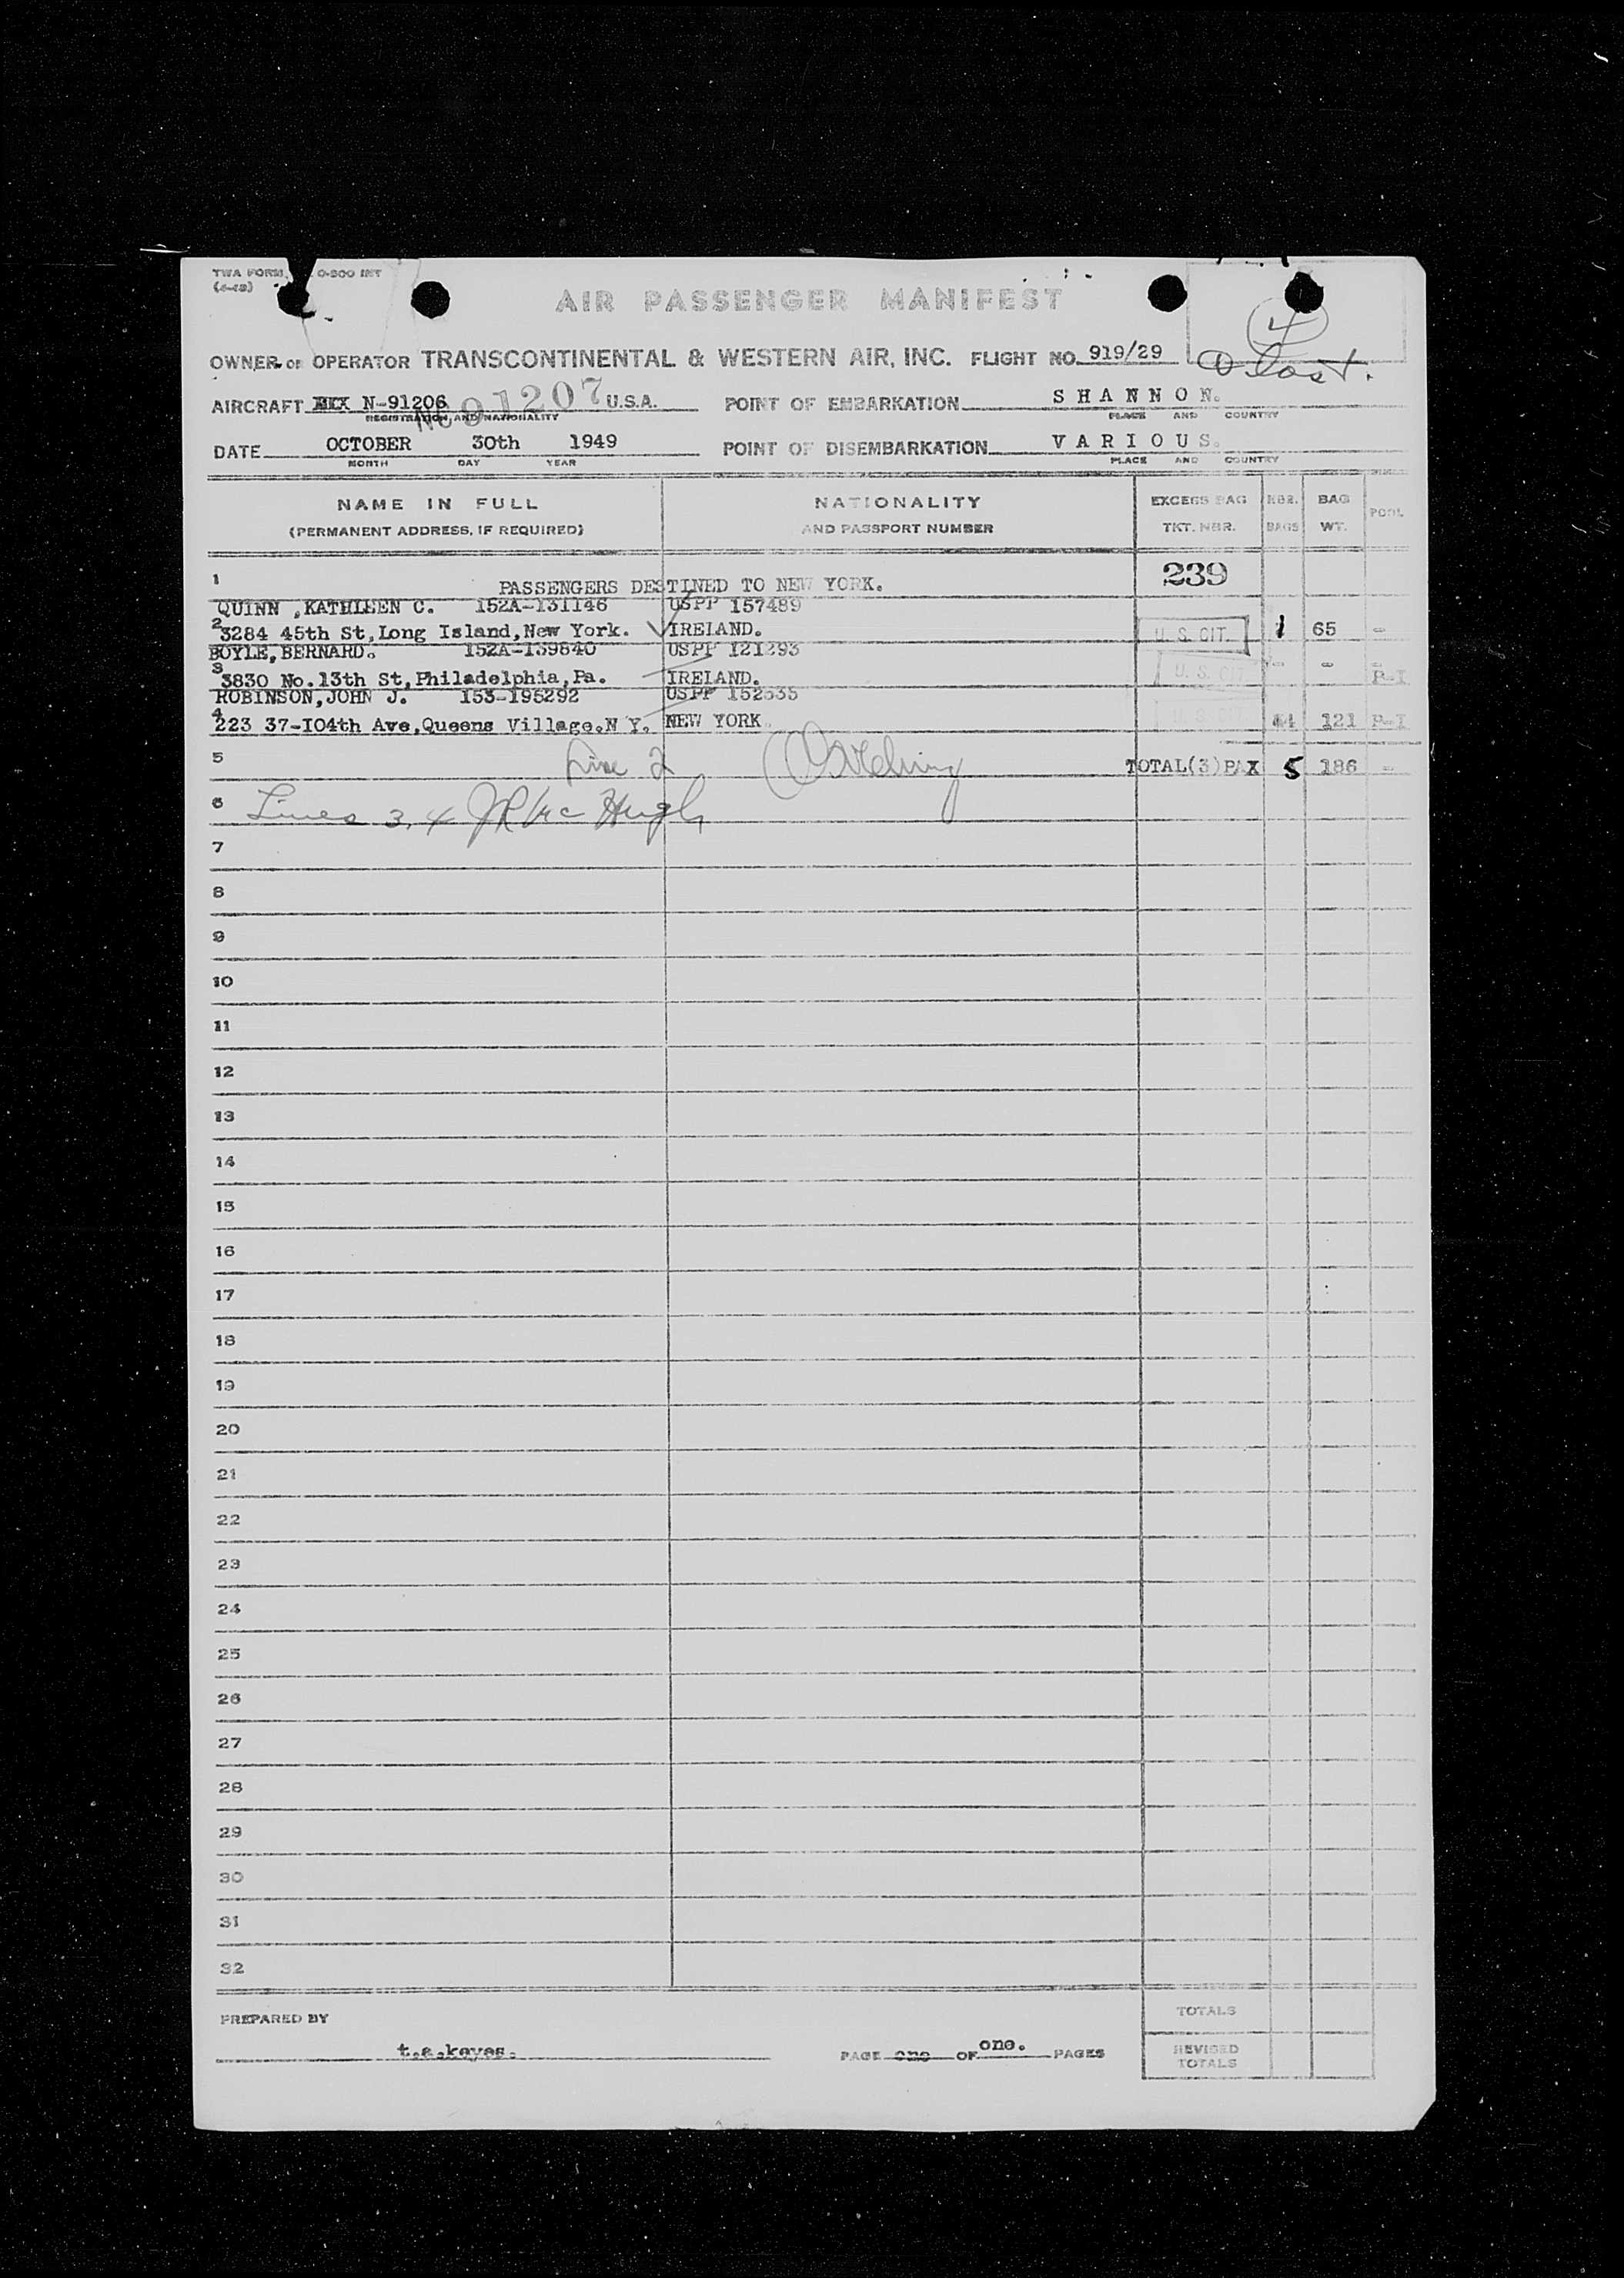 TWA FORM O-800 INT
(4-48)
AIR PASSENGER MANIFEST
4
OWNER OR OPERATOR TRANSCONTINENTAL & WESTERN AIR, INC. FLIGHT NO. 919/29
AIRCRAFT N-91206 U.S.A. POINT OF EMBARKATION SHANNON.
NC 91207
REGISTRATION AND NATIONALITY PLACE AND COUNTRY
DATE OCTOBER 30th 1949 POINT OF DISEMBARKATION VARIOUS.
MONTH DAY YEAR PLACE AND COUNTRY
NAME IN FULL NATIONALITY EXCESS BAG NBR. BAG POOL
(PERMANENT ADDRESS, IF REQUIRED) AND PASSPORT NUMBER TKT. NBR. BAGS WT.
1 PASSENGERS DESTINED TO NEW YORK. 239
QUINN ,KATHLEEN C. 152A-131146 USPP 157489
2 3284 45th St,Long Island,New York. IRELAND. U. S. CIT. 1 65 -
BOYLE,BERNARD. 152A-139840 USPP 121293
3 3830 No.13th St,Philadelphia,Pa. IRELAND. U. S. CIT - - P-I
ROBINSON,JOHN J. 153-195292 USPP 152535
4 223 37-I04th Ave,Queens Village.N Y. NEW YORK. U S CIT 4 121 P-I
5 Line 2 TOTAL(3)PAX 5 186 -
6 Lines 3, 4 JR McHugh
7
8
9
10
11
12
13
14
15
16
17
18
19
20
21
22
23
24
25
26
27
28
29
30
31
32
PREPARED BY TOTALS
t.a.keyes. PAGE one OF one. PAGES REVISED
TOTALS